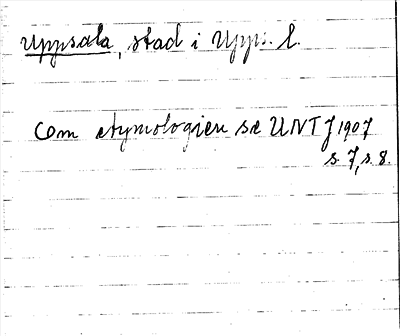 Uppsala, stad i Upps. l.
Om etymologien se UNT J 1907
s. 7, s. 8.